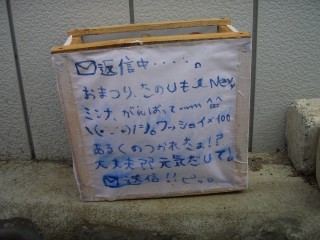 ✉返信中・・・・。
おまつり、たのしもぉ New
ミンナ、がんばって〰 ^^
\(・.・)/ ワッショイ×100
あるくのつかれたよ!?
大丈夫?? 元気だして!
✉送信!!